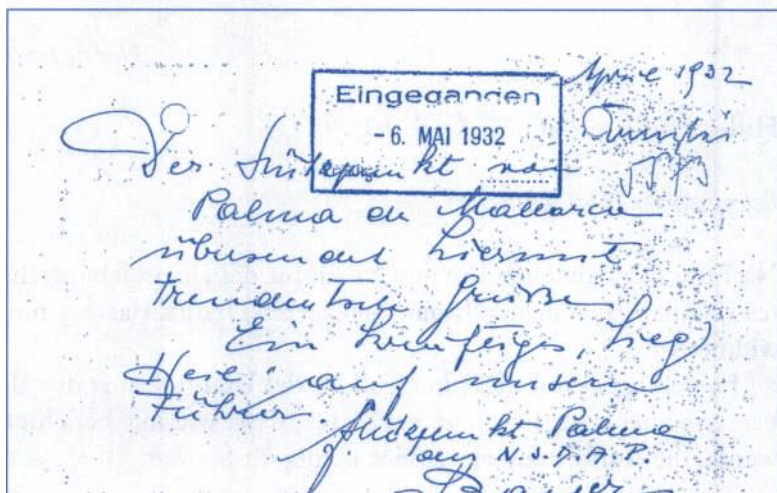 April 1932
Eingegangen
- 6. MAI 1932
Der Stützpunkt von
Palma de Mallorca
übersendet hiermit
treudeutsche Grüsse
Ein kräftiges, Sieg
Heil' auf unsern
Führer
Stützpunkt Palma
der N.S.D.A.P.